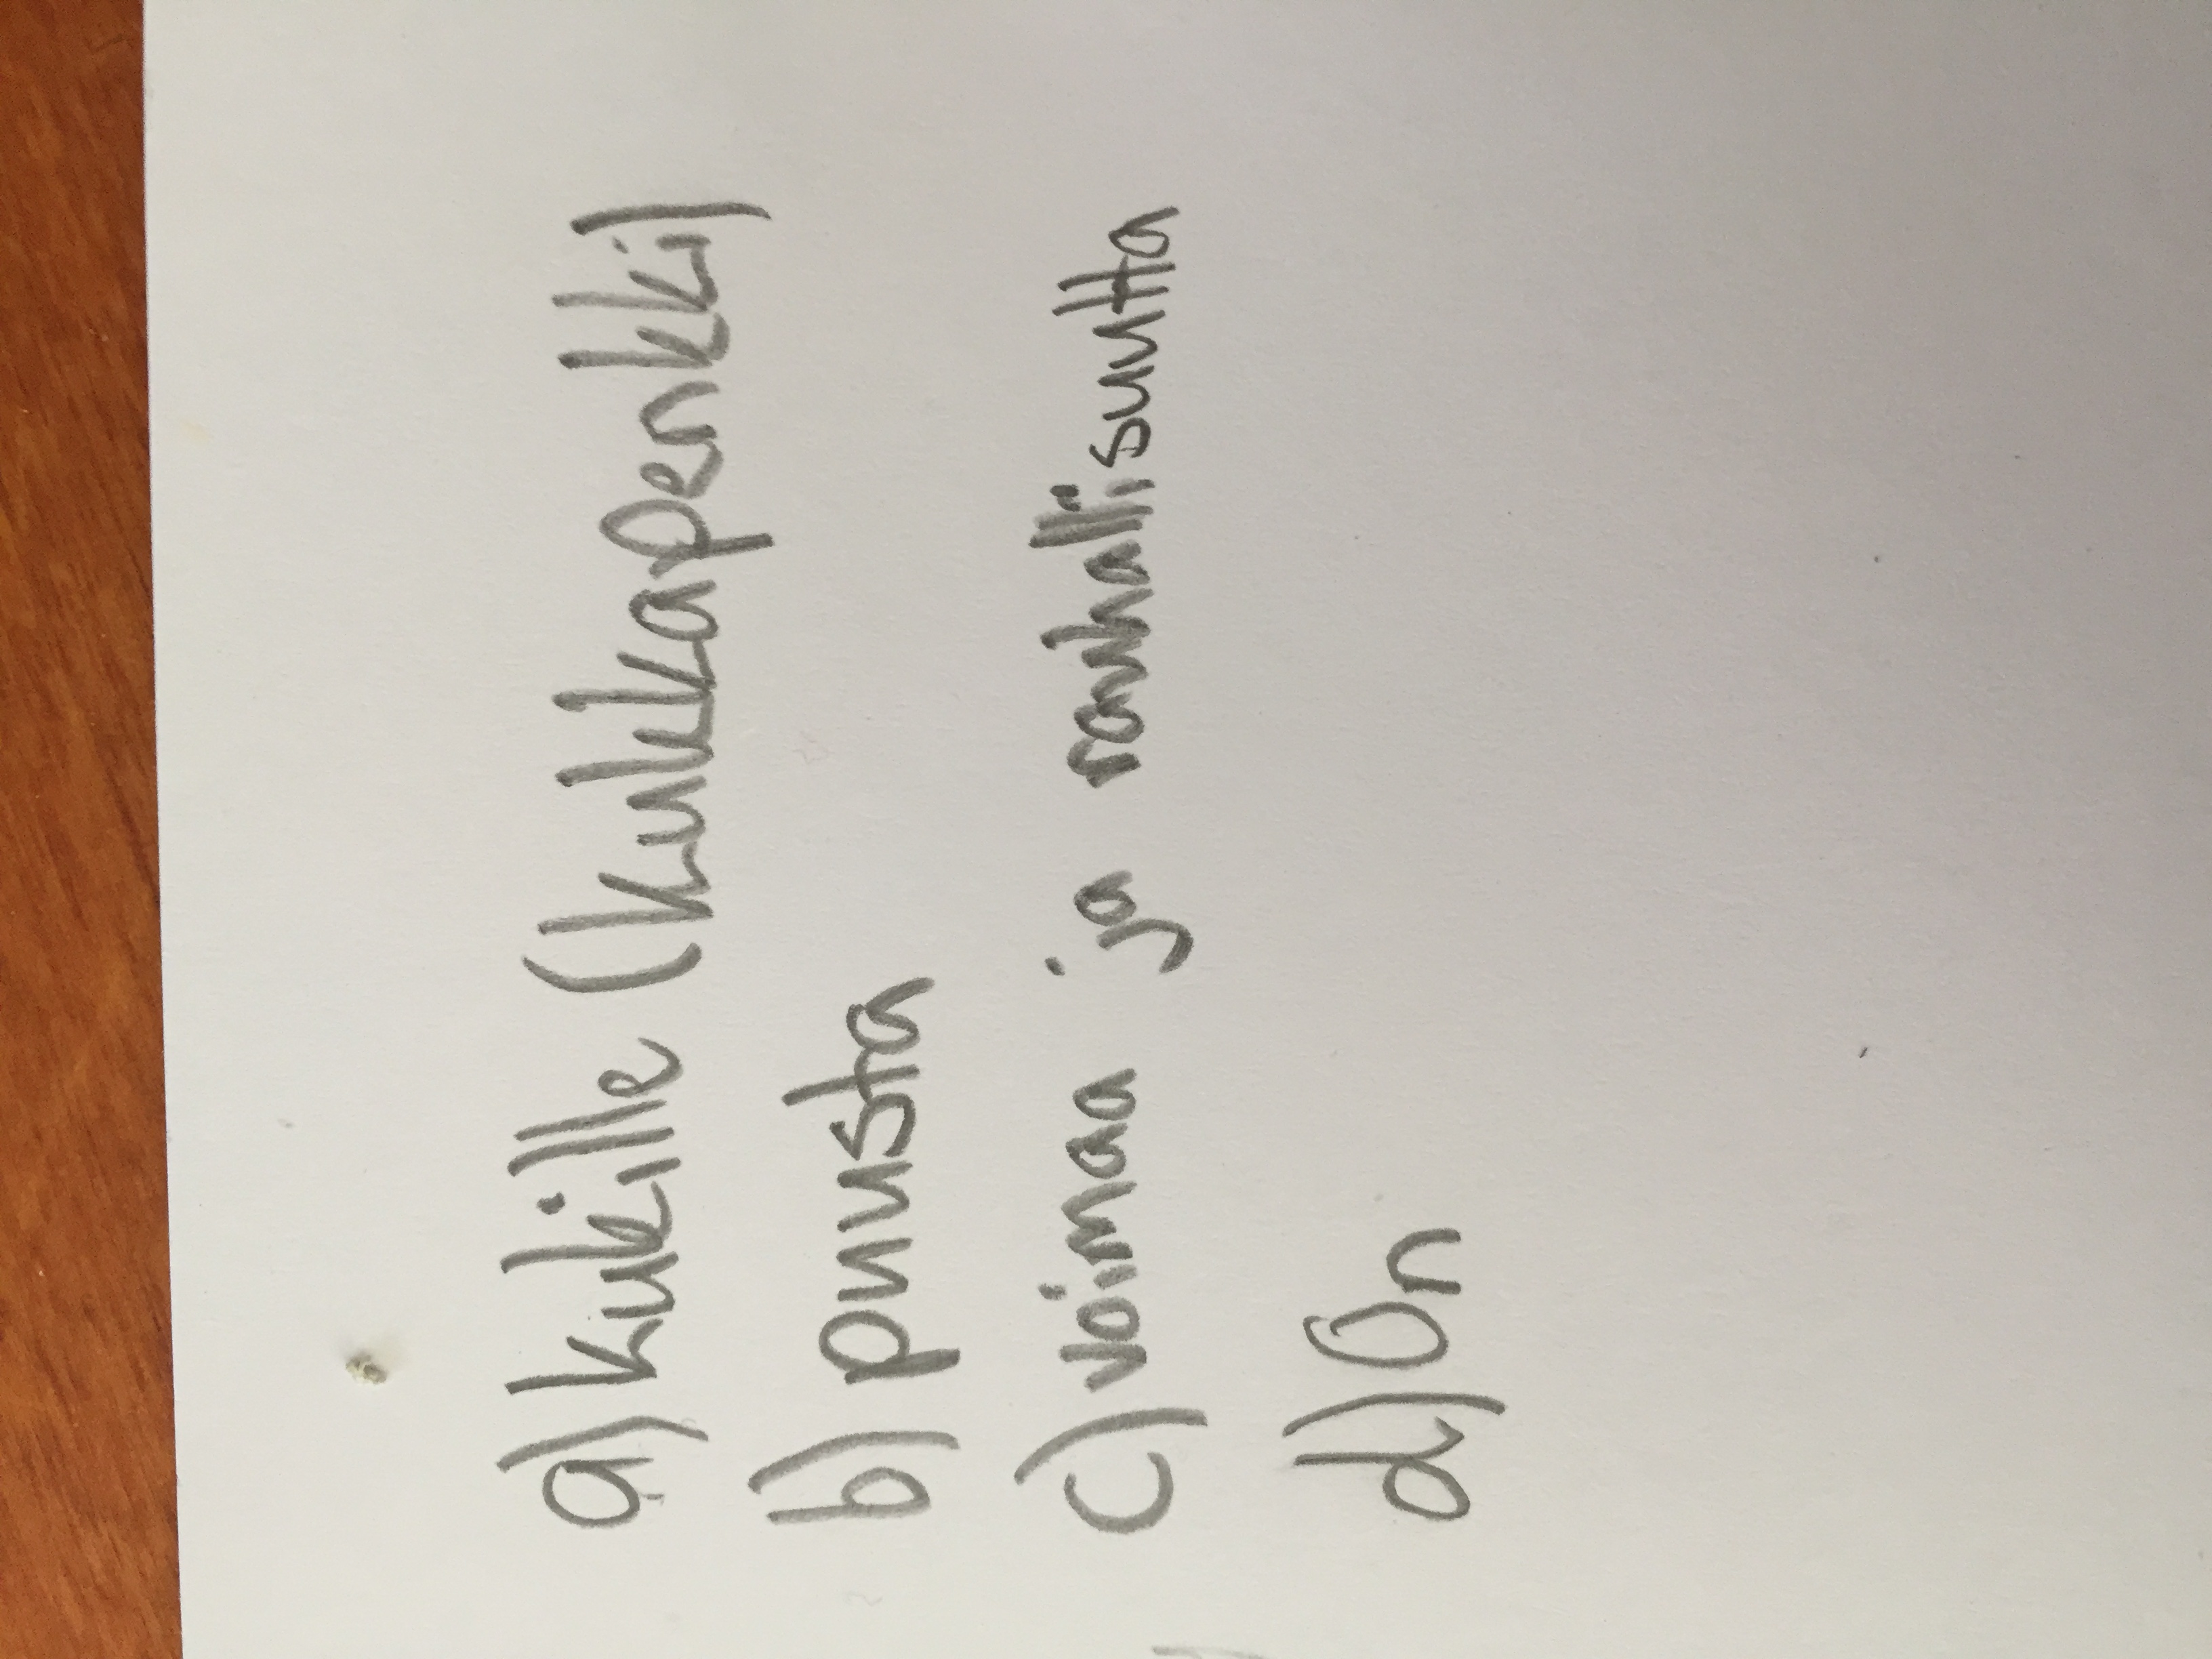 a) kukille (kukkapenkki)
b) puusta
c) voimaa ja rauhallisuutta
d) On